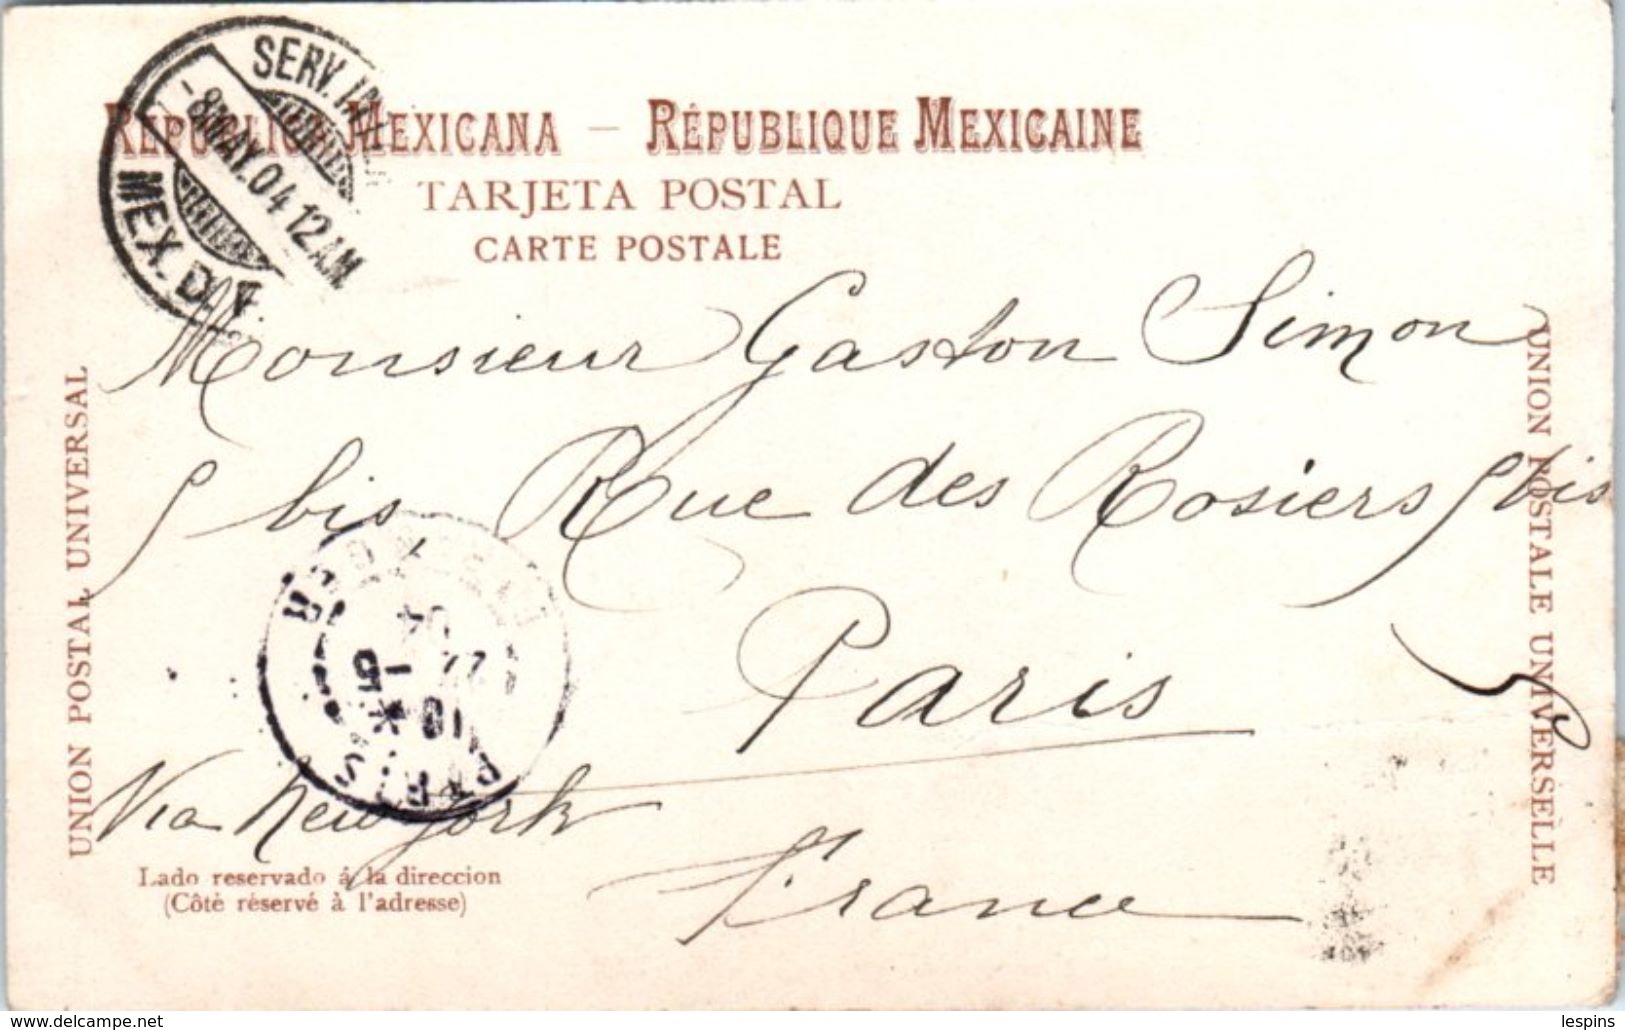 SERV. INT
- 8 MAY. 04 12 AM.
MEX. D. F.
REPUBLICA MEXICANA – RÉPUBLIQUE MEXICAINE
TARJETA POSTAL
CARTE POSTALE
Monsieur Gaston Simon
9 bis Rue des Rosiers 9 bis
Paris
Via New York
France
UNION POSTAL UNIVERSAL
UNION POSTALE UNIVERSELLE
PARIS
ETRANGER
04
Lado reservado á la direccion
(Côtè réservé à l'adresse)
www.delcampe.net
lespins